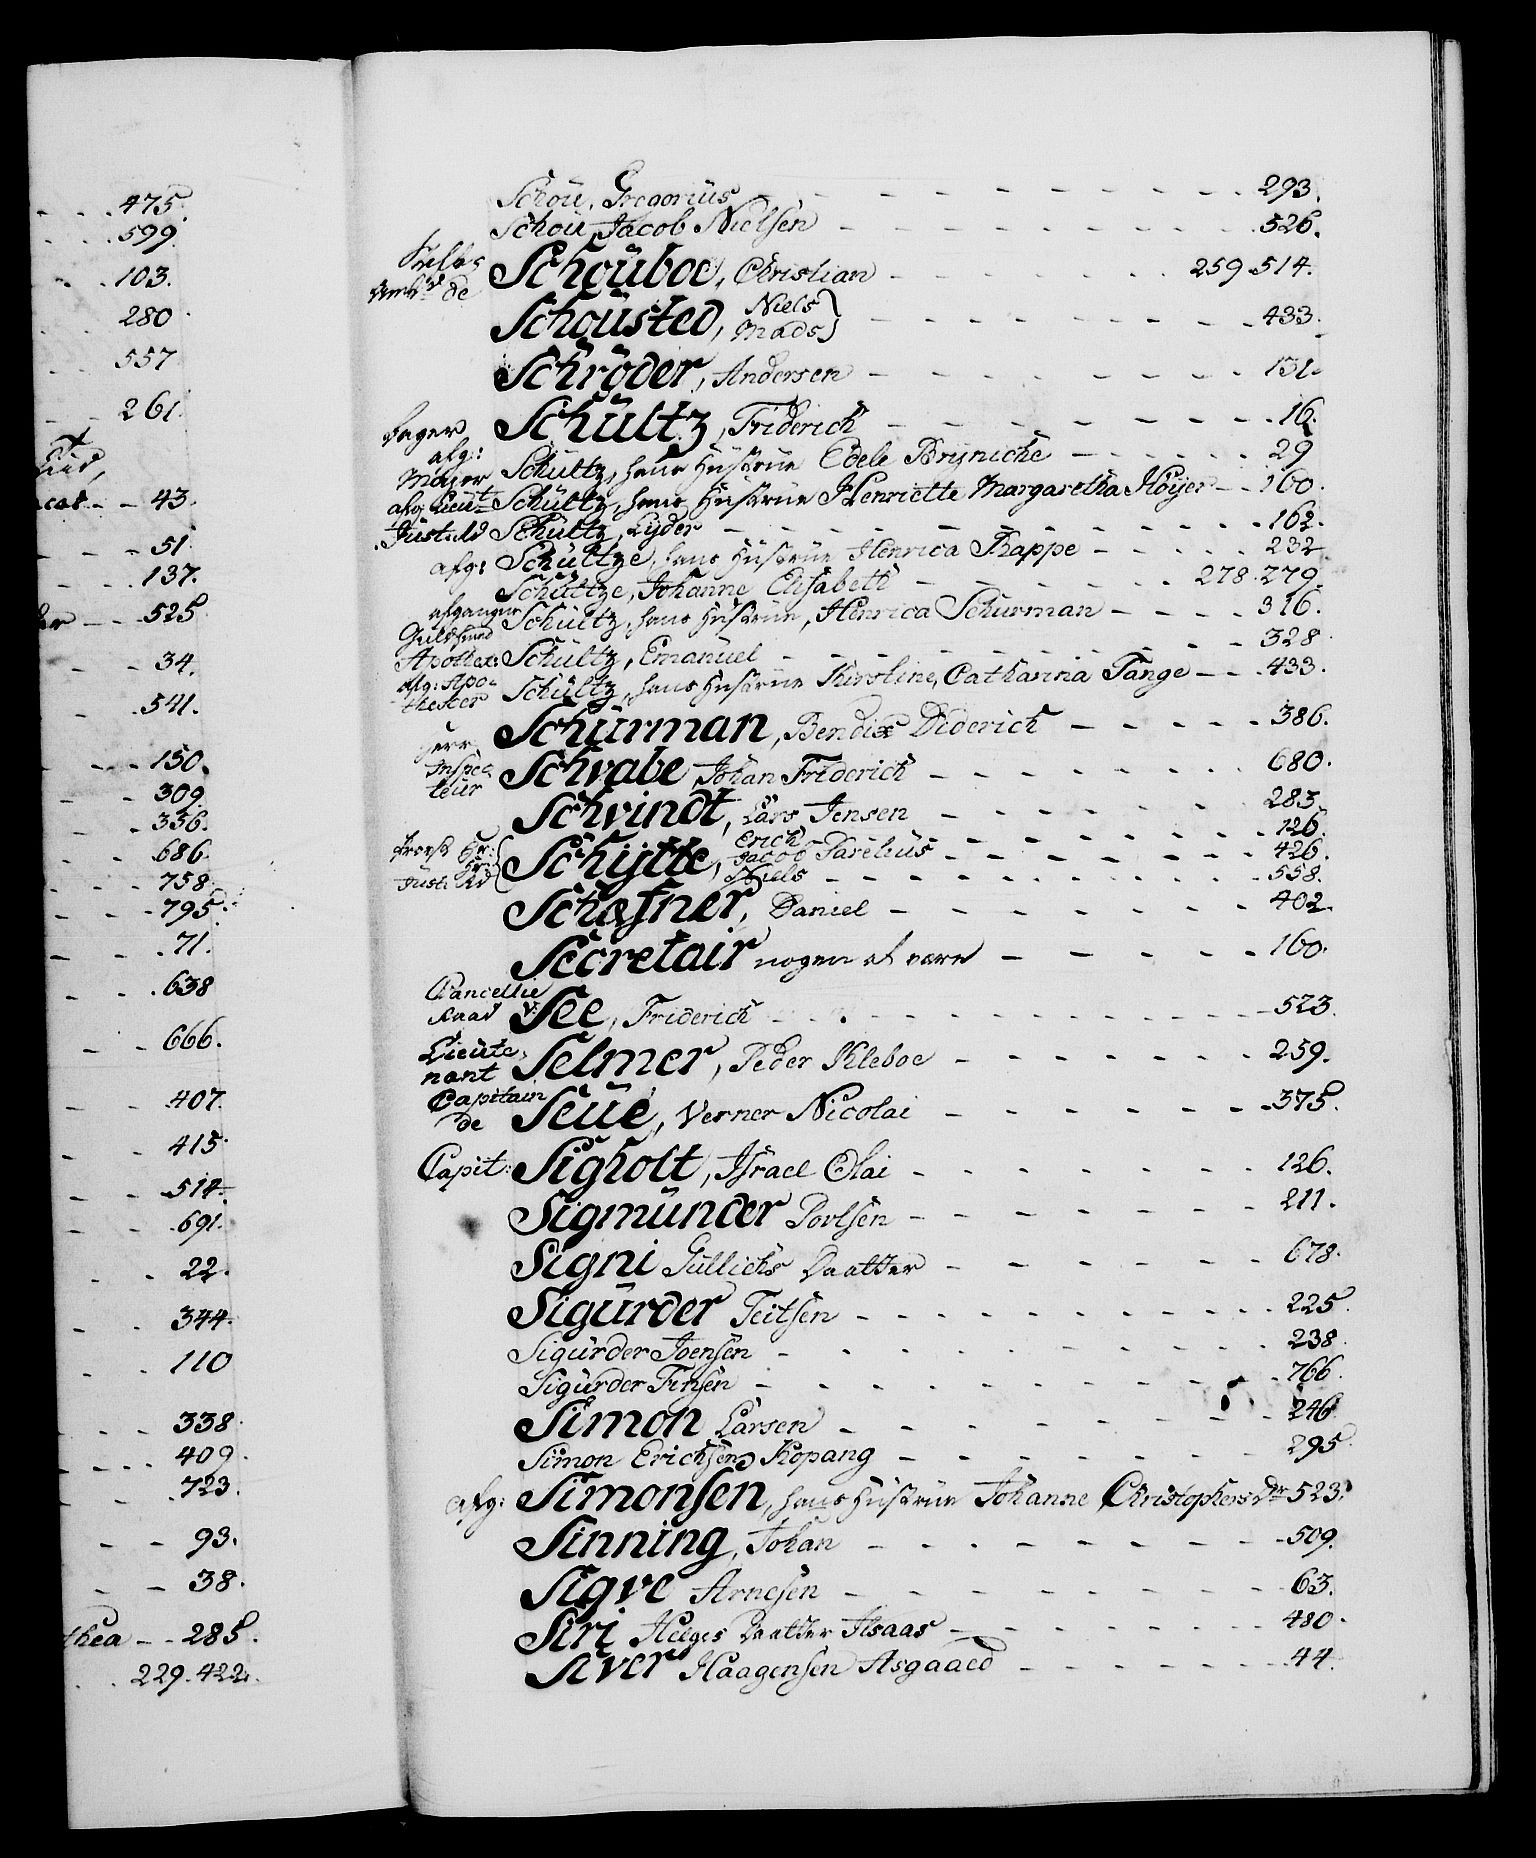 475.
599.
103.
280
557
261.
43.
51
137.
525
34.
541.
150.
309.
336.
686.
758.
795.
71.
638
666.
407.
415.
514.
691.
22.
344.
110
338.
409.
723.
93.
38.
thea - - 285.
229. 422.
Schou, Gregorius - - - 293.
Schou, Jacob Nielsen - - - 526.
Schouboe, Christian - - - 259. 514.
de
Schousted, Niels
Mads - - - 433.
Schröder, Andersen - - - 131.
Bager Schultz, Friderich - - - 16.
afg:
Major Schultz, hans Hustrue Edele Brynicke - - - 29
afg Lieut Schultz, hans Hustrue Henriette Margaretha Höyer - - 160.
Justs: Rd Schultz, Lyder - - - 162.
afg: Schultze, hans Hustrue Henrica Rappe - - - 232
Schultze, Johanne Elisabeth - - - 278. 279.
afgangne
Guldsmed Schultz, hans Hustrue, Henrica Schurman - - - 316.
Apothek: Schultz, Emanuel - - - 328
afg: Apo-
theker Schultz, hans Hustrue Kirstine, Catharina Tange - - 433.
Herr Schurman, Bendix Diderich - - - 386.
Inspec-
teur Schvabe, Johan Friderich - - - 680.
Schvindt, Lars Jensen - - - 283.
Provst Hr: Schytte, Erich - - - 126.
Hr: Jacob Parelius - - - 426.
Justs: Rd Niels - - - 558.
Schæfner, Daniel - - - 402.
Secretair nogen at være - - - 160.
Cancellie
Raad v: See, Friderich - - - 523.
Lieute-
nant Selmer, Peder Kleboe - - - 259.
Capitain
de Seue, Verner Nicolai - - - 375.
Capit: Sigholt, Israel Olai - - - 126.
Sigmunder Povlsen - - - 211.
Signi Gullichs Daatter - - - 678.
Sigurder Teitsen - - - 225.
Sigurder Joensen - - - 238.
Sigurder Finsen - - - 766.
Simon Larsen - - - 246
Simon Erichsen Kopang - - - 295.
afg: Simonsen, hans Hustrue Johanne Christophers Dr 523.
Sinning, Johan - - - 509.
Sigve Arnesen - - - 63.
Siri Helges Daatter Aasaas - - - 480.
Siver Haagensen Asgaard - - - 44.